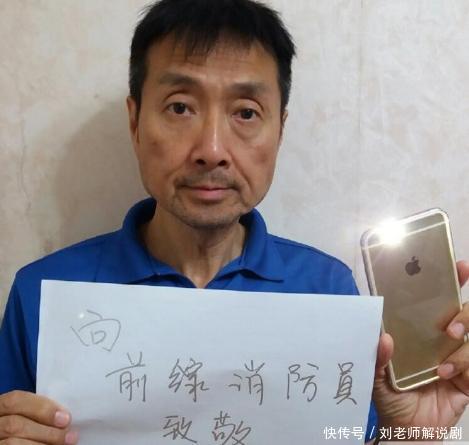 向
前線消防員
致敬
快传号/刘老师解说剧